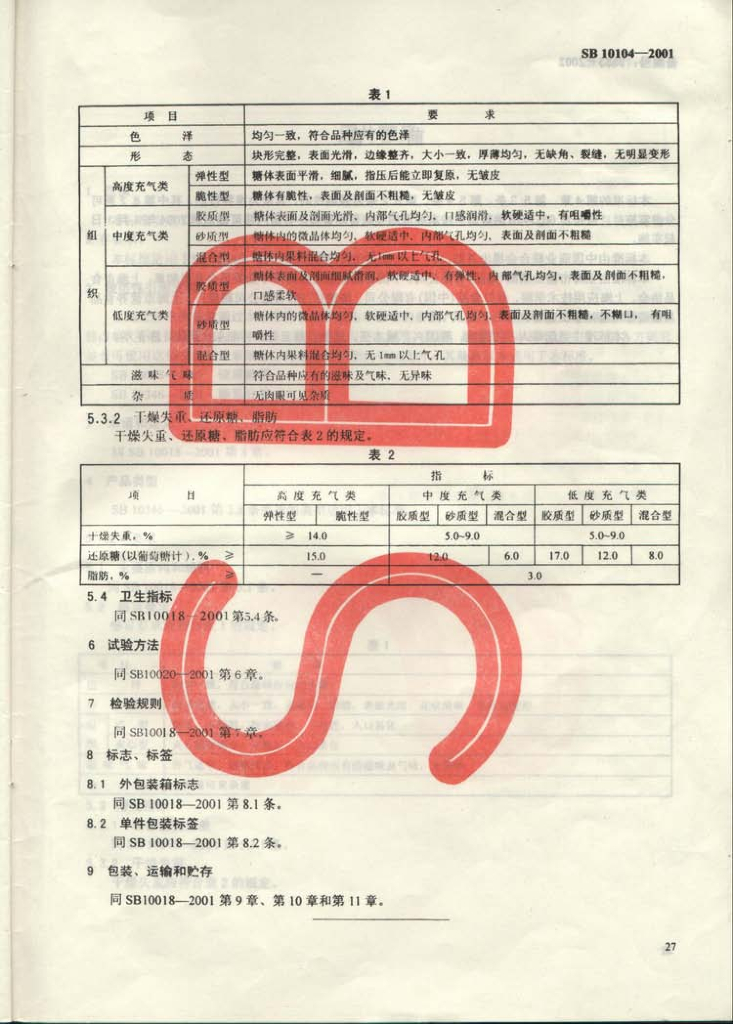 SB 10104—2001
表 1
项 目 要 求
色 泽 均匀一致，符合品种应有的色泽
形 态 块形完整，表面光滑，边缘整齐，大小一致，厚薄均匀，无缺角、裂缝，无明显变形
组织 高度充气类 弹性型 糖体表面平滑，细腻，指压后能立即复原，无皱皮
脆性型 糖体有脆性，表面及剖面不粗糙，无皱皮
中度充气类 胶质型 糖体表面及剖面光滑，内部气孔均匀，口感润滑，软硬适中，有咀嚼性
砂质型 糖体内的微晶体均匀，软硬适中，内部气孔均匀，表面及剖面不粗糙
混合型 糖体内果料混合均匀，无1mm以上气孔
低度充气类 胶质型 糖体表面及剖面细腻滑润，软硬适中，有弹性，内部气孔均匀，表面及剖面不粗糙，
口感柔软
砂质型 糖体内的微晶体均匀，软硬适中，内部气孔均匀，表面及剖面不粗糙，不糊口，有咀
嚼性
混合型 糖体内果料混合均匀，无1mm以上气孔
滋味气味 符合品种应有的滋味及气味，无异味
杂 质 无肉眼可见杂质
5.3.2 干燥失重、还原糖、脂肪
干燥失重、还原糖、脂肪应符合表2的规定。
表 2
项 目 指 标
高度充气类 中度充气类 低度充气类
弹性型 脆性型 胶质型 砂质型 混合型 胶质型 砂质型 混合型
干燥失重，% ≥ 14.0 5.0~9.0 5.0~9.0
还原糖(以葡萄糖计)，% ≥ 15.0 12.0 6.0 17.0 12.0 8.0
脂肪，% ≥ — 3.0
5.4 卫生指标
同SB10018—2001第5.4条。
6 试验方法
同SB10020—2001第6章。
7 检验规则
同SB10018—2001第7章。
8 标志、标签
8.1 外包装箱标志
同SB 10018—2001第8.1条。
8.2 单件包装标签
同SB 10018—2001第8.2条。
9 包装、运输和贮存
同SB10018—2001第9章、第10章和第11章。
27